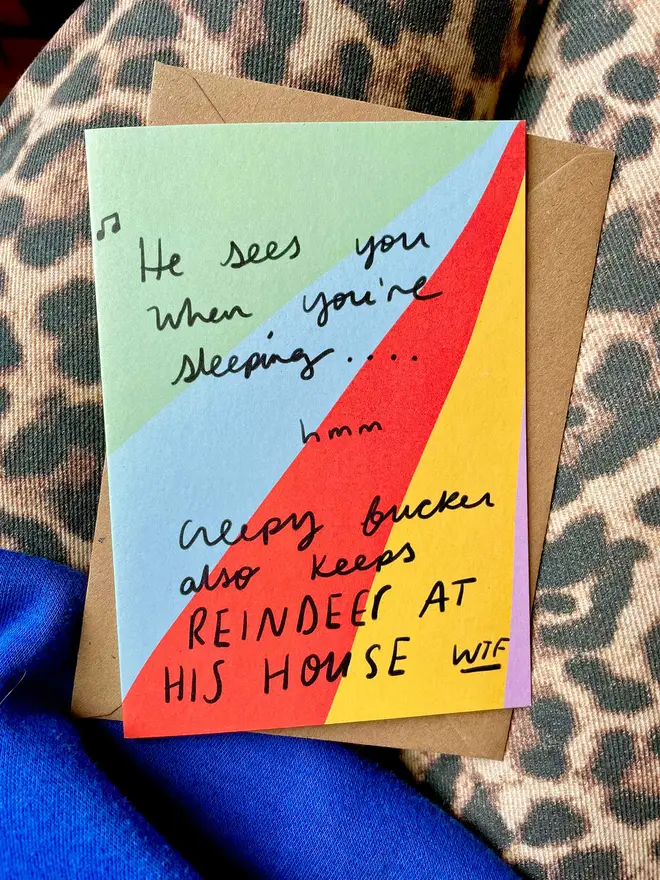 ♫ He sees you
when you're
sleeping....
hmm
creepy fucker
also keeps
REINDEER AT
HIS HOUSE WTF